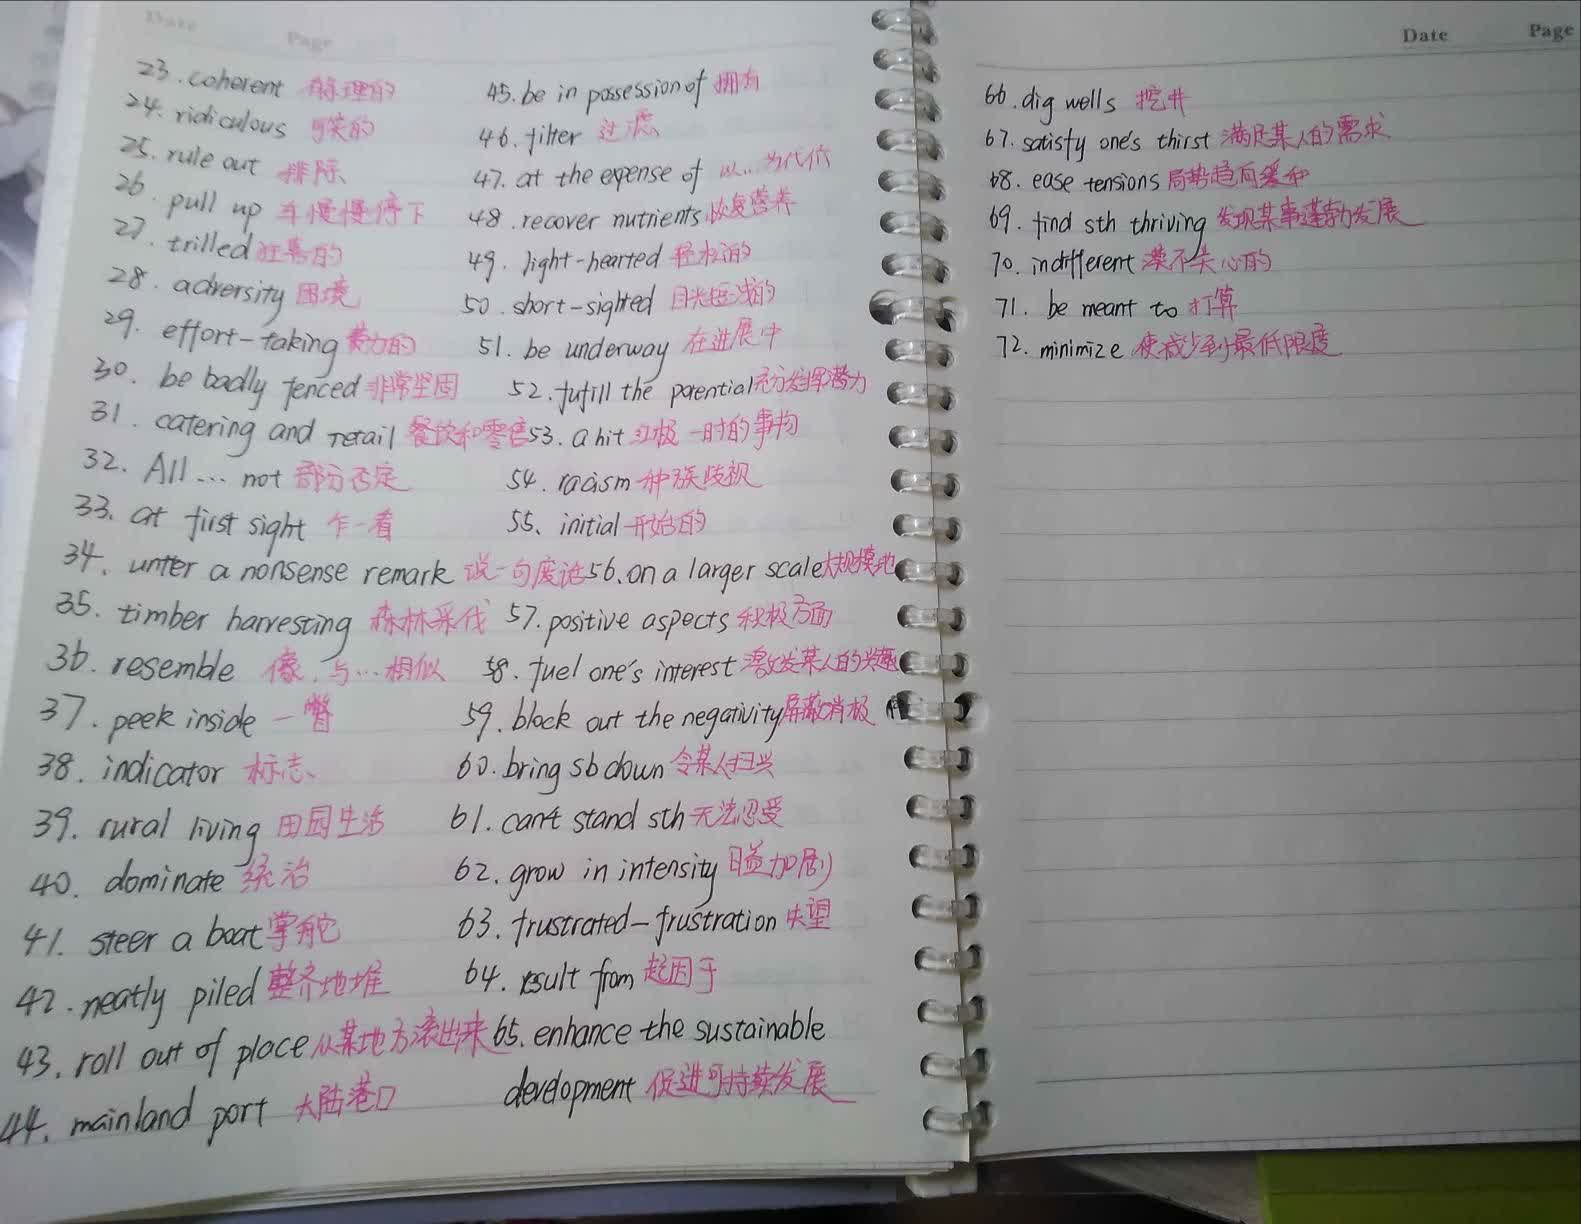 Date
Page
23. coherent 有条理的
24. ridiculous 可笑的
25. rule out 排除
26. pull up 车慢慢停下
27. trilled 狂喜的
28. adversity 困境
29. effort-taking 费力的
30. be badly fenced 非常坚固
31. catering and retail 餐饮和零售
32. All ... not 部分否定
33. at first sight 乍一看
34. unter a nonsense remark 说一句废话
35. timber harvesting 森林采伐
36. resemble 像,与...相似
37. peek inside 一瞥
38. indicator 标志
39. rural living 田园生活
40. dominate 统治
41. steer a boat 掌舵
42. neatly piled 整齐地堆
43. roll out of place 从某地方滚出来
44. mainland port 大陆港口
45. be in possession of 拥有
46. filter 过滤
47. at the expense of 以...为代价
48. recover nutrients 恢复营养
49. light-hearted 轻松的
50. short-sighted 目光短浅的
51. be underway 在进展中
52. fufill the potential 充分发挥潜力
53. a hit 红极一时的事物
54. racism 种族歧视
55. initial 开始的
56. on a larger scale 大规模地
57. positive aspects 积极方面
58. fuel one's interest 激发某人的兴趣
59. block out the negativity 屏蔽消极
60. bring sb down 令某人扫兴
61. can't stand sth 无法忍受
62. grow in intensity 日益加剧
63. frustrated-frustration 失望
64. result from 起因于
65. enhance the sustainable
development 促进可持续发展
Date Page
66. dig wells 挖井
67. satisfy one's thirst 满足某人的需求
68. ease tensions 局势趋向缓和
69. find sth thriving 发现某事蓬勃发展
70. indifferent 漠不关心的
71. be meant to 打算
72. minimize 使减少到最低限度